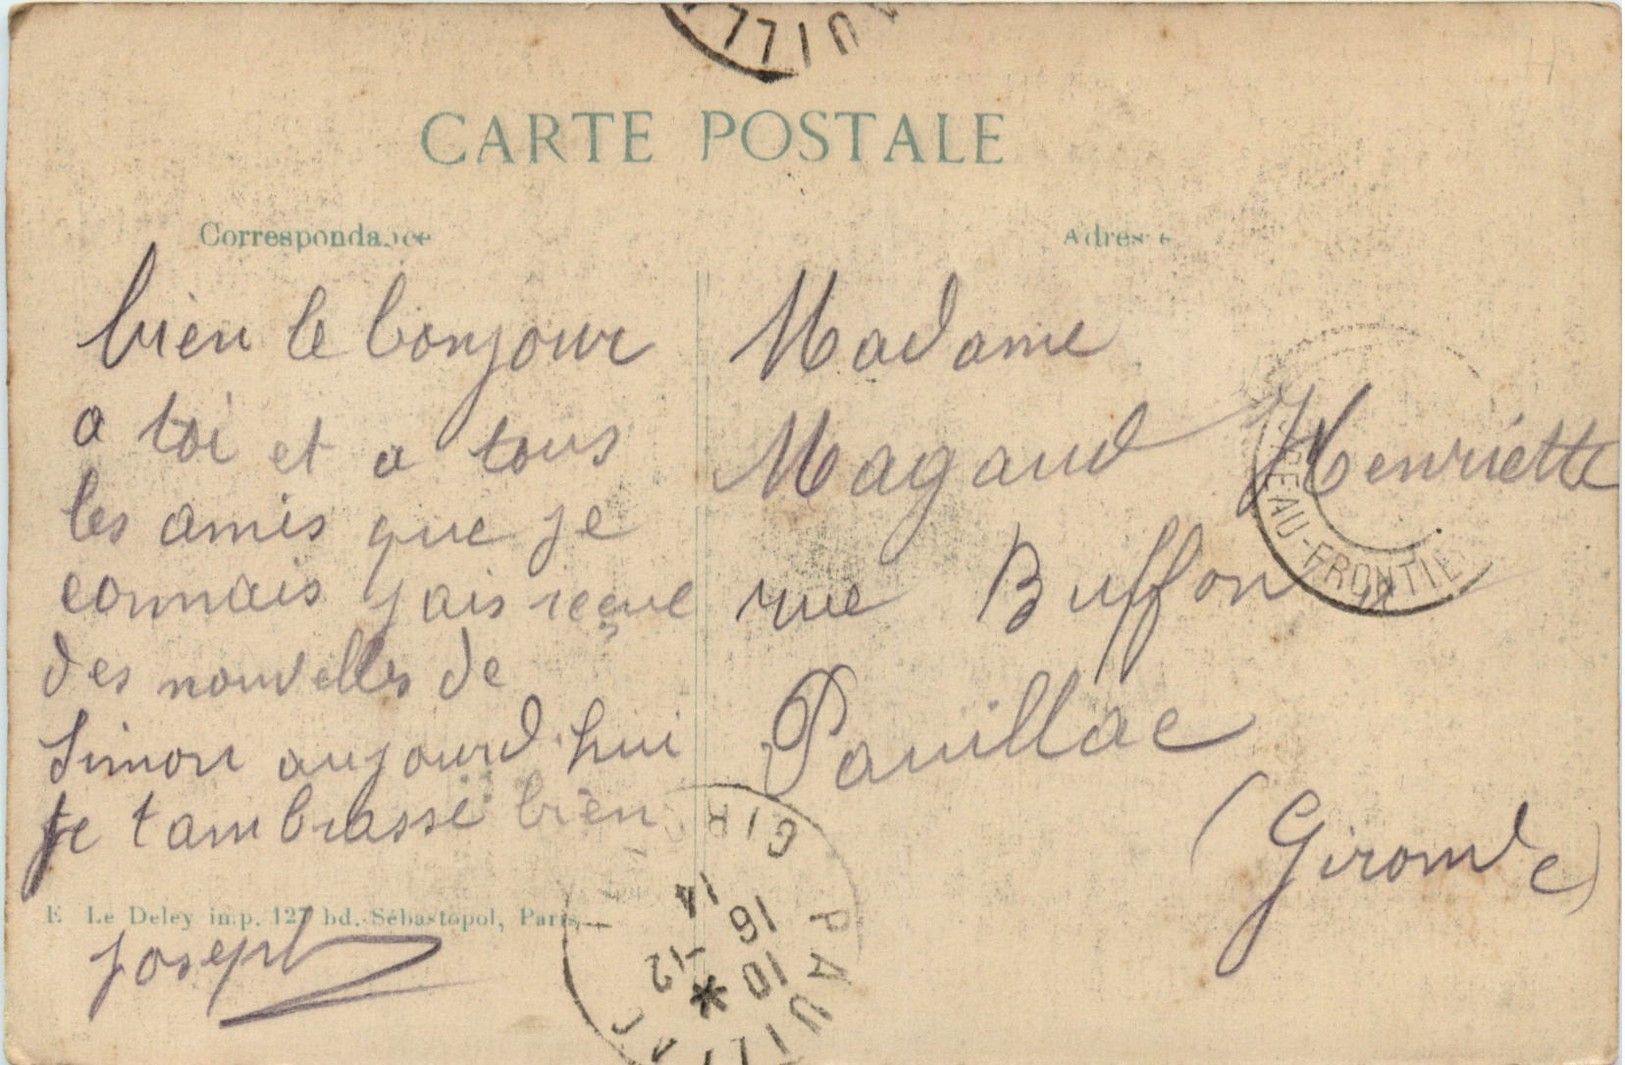 CARTE POSTALE
Correspondance
bien le bonjour
a toi et a tous
les amis que je
connais j ais reçue
des nouvelles de
Simon aujourd'hui
je tambrasse bien
Joseph
E. Le Deley imp. 127 bd. Sébastopol, Paris
Adresse
Madame
Magaud Henriette
rue Buffon
Pauillac
(Gironde)
EAU-FRONTIE
PAUILLAC
GIR
16
10
-12
14
UILL